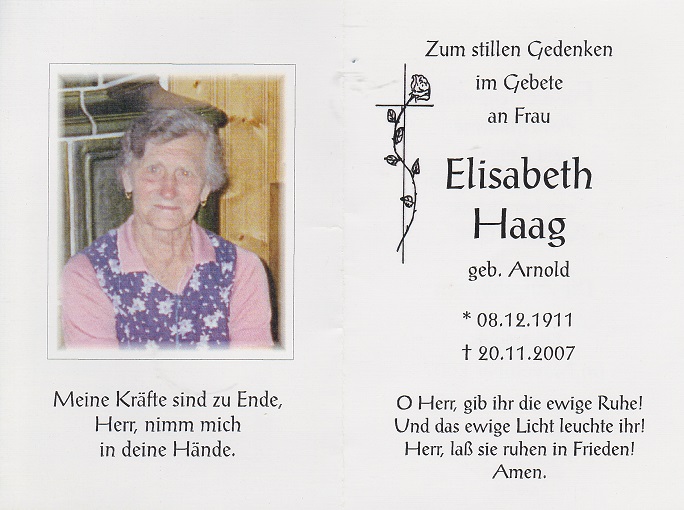 Meine Kräfte sind zu Ende,
Herr, nimm mich
in deine Hände.
Zum stillen Gedenken
im Gebete
an Frau
Elisabeth
Haag
geb. Arnold
* 08.12.1911
† 20.11.2007
O Herr, gib ihr die ewige Ruhe!
Und das ewige Licht leuchte ihr!
Herr, laß sie ruhen in Frieden!
Amen.